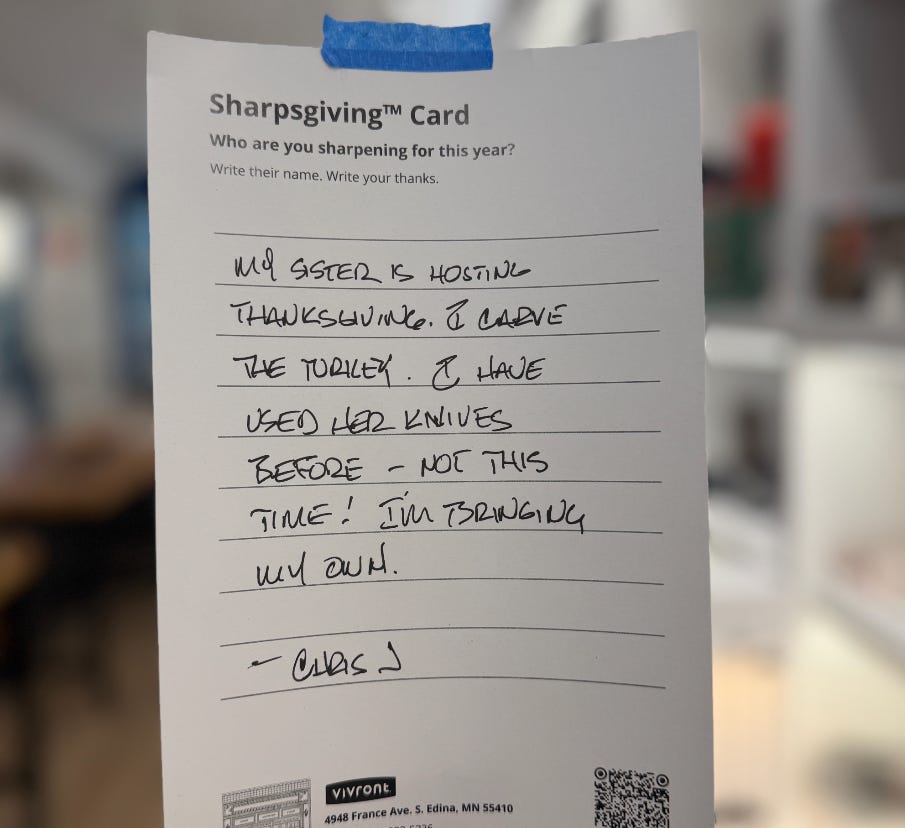 Sharpsgiving™ Card
Who are you sharpening for this year?
Write their name. Write your thanks.
MY SISTER IS HOSTING
THANKSGIVING. I CARVE
THE TURKEY. I HAVE
USED HER KNIVES
BEFORE - NOT THIS
TIME! I'M BRINGING
MY OWN.
- CHRIS J
vivront
4948 France Ave. S. Edina, MN 55410